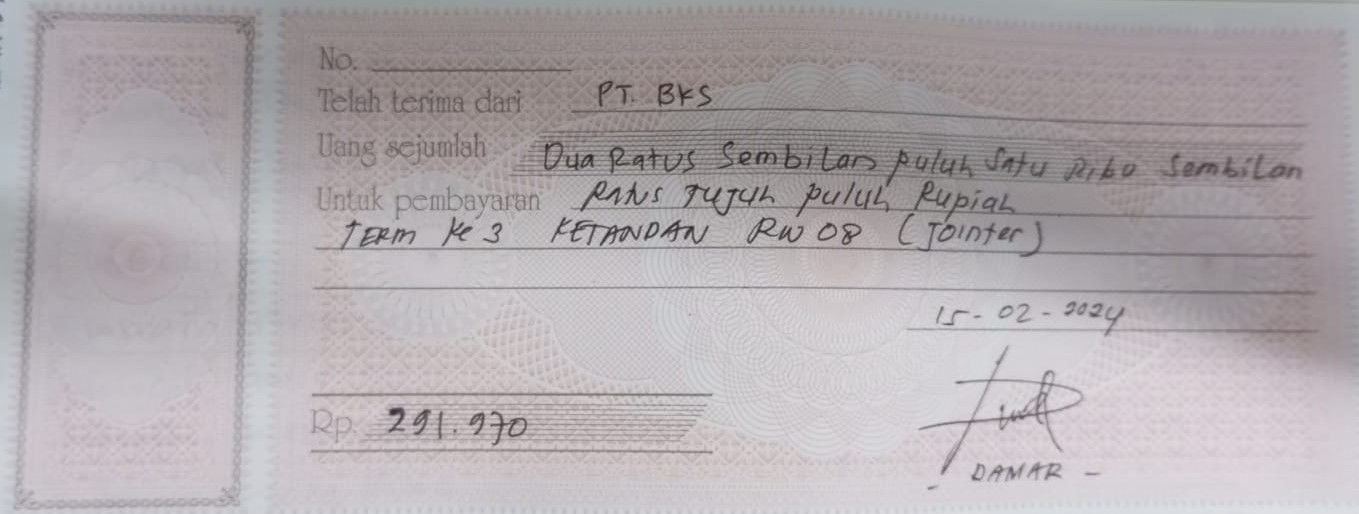 No.
Telah terima dari PT. BKS
Uang sejumlah Dua Ratus Sembilan puluh Satu Ribu Sembilan
Untuk pembayaran Ratus Tujuh puluh Rupiah
TERM Ke 3 KETANDAN RW 08 (Jointer)
15-02-2024
Rp. 291.970
- DAMAR -